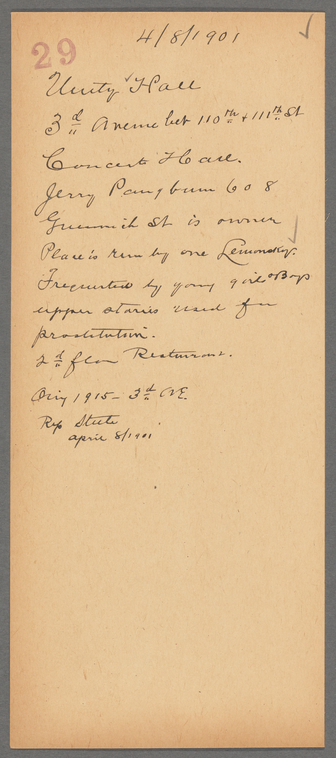 29
4/8/1901
Unity Hall
3d Avenue bet 110th & 111th St
Concert Hall.
Jerry Pangburn 608
Greenwich St is owner
Place is run by one Lemonsky.
Frequented by young girls & Boys
upper stories used for
prostitution.
2d floor Restaurant.
1915 - 3d AVE.
Rep Steele
april 8/1901